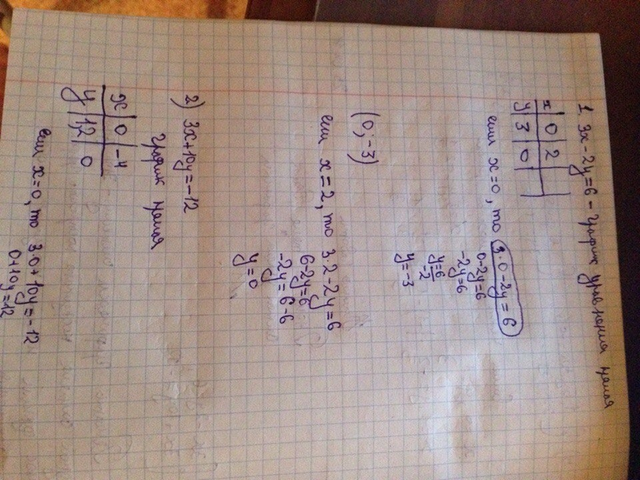 1. 3x-2y=6 - график уравнения прямая
x | 0 | 2 |
y | 3 | 0 |
если x=0, то 3·0-2y=6
0-2y=6
-2y=6
y=6/-2
y=-3
(0;-3)
если x=2, то 3·2-2y=6
6-2y=6
-2y=6-6
y=0
2) 3x+10y=-12
график прямая
x | 0 | -4
y | 12 | 0
если x=0, то 3·0+10y=-12
0+10y=12